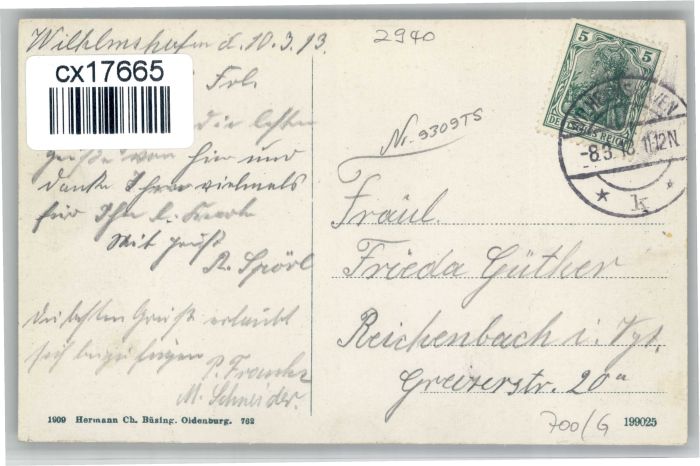 Wilhelmshafen d. 10.3.13.
2940
cx17665
Frl.
die besten
Grüße von hier und
danke Ihnen vielmals
für Ihre l. Karte
Mit Gruß
R. Spörl
Die besten Grüße erlaubt
sich beizufügen
P. Francke
M. Schneider.
5 5
DEUTSCHES REICH
-8.3.13. 11-12N
* k *
Nr. 9309TS
Fräul.
Frieda Güther
Reichenbach i. Vgt.
Greizerstr. 20a
1909 Hermann Ch. Büsing. Oldenburg. 762
700/G
199025